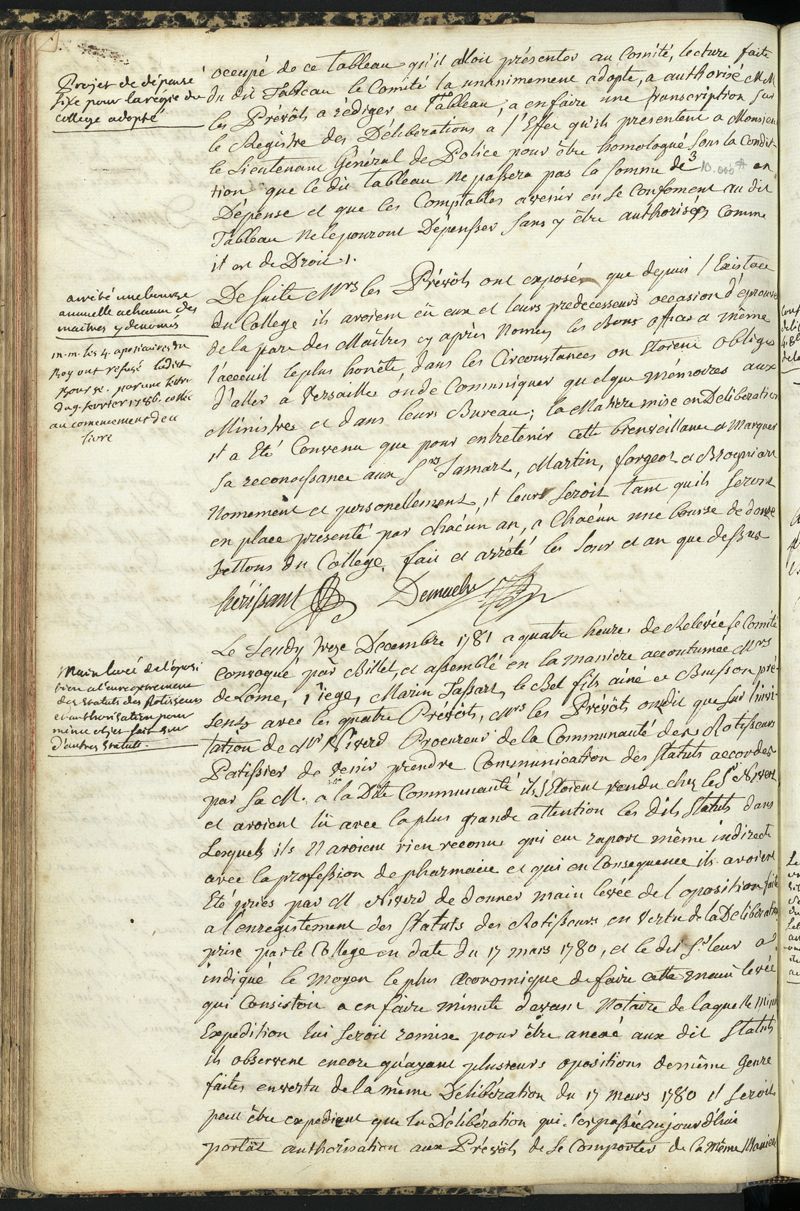 Projet de dépense
fixe pour la régie du
college adopté
occupé de ce tableau qu'il alloit présenter au Comité, lecture faite
du dit Tableau le Comité l'a unanimement adopté, a authorisé MM
les Prévôts a rédiger ce Tableau, a en faire une transcription sur
le Registre des Délibérations a l'Effet qu'ils presentent a Monsieur
le Lieutenant Général de Police pour être homologué sous la Condi-
tion que le dit tableau ne passera pas la somme de 10.000 # en
Dépense et que les Comptables avenir en se Conformant au dit
Tableau ne le pouront Dépenser sans y être authorisés comme
il est de Droit.
arrêté une bourse
annuelle a chacun des
maitres y denomés
m.m. les 4 apoticaires du
Roy ont refusé ladite
Bourse par une lettre
du 9 fevrier 1786
au commencement du
livre
De suite Mrs les Prévôts ont exposés que depuis l'Existance
du College ils avoient eü eux et leurs predecesseurs occasion d'éprouver
de la part des Maîtres cy après Només les Bons offices et même
l'acceuil le plus honête, dans les Circonstances on étoient obligés
d'aller a Versailles ou de Communiquer quelque mémoires aux
Ministres et dans leurs Bureau; la Matière mise en Délibération
il a Eté Convenu que pour entretenir cette bienveillance et Marquer
sa reconoissance aux Srs Jamart, Martin, forgeot et Brogniart
Nomément et personellement, il leur seroit tant qu'ils seront
en place présenté par chacun an, a Chacun une bourse de douze
Jettons du College, fait et arrêté les Jour et an que dessus
hérissant Demachy
Main levée de l'oposi
tion a l'enregistrement
des statuts des Rotisseurs
et authorisation pour
même objet
d'autres Statuts.
Le Jeudy treze Decembre 1781 a quatre heures de Relevée le Comité
Convoqué par Billet, et assemblé en la maniere accoutumée Mrs
de Lome, Piege, Marin, Tassart, le Bel fils ainé et Buisson pré-
sents avec les quatre Prévôts, Mrs les Prévôts ont dit que sur l'invi-
tation de Mr Niverd Procureur de la Communauté des Rotisseurs
Patissier de venir prendre Communication des Statuts accordés
par Sa M. a la Dite Communauté ils s'étoient rendu chez le Sr Nivert
et avoient lü avec la plus grande attention les dits Statuts dans
Lesquels ils N'avoient rien reconnu qui eut raport même indirecte
avec la profession de pharmacie et qui en Consequence ils avoient
Eté priés par M Niverd de donner main levée de l'oposition faite
a l'enregistement des Statuts des Rotisseurs en vertu de la Deliberation
prise par le College en date du 17 mars 1780, et le dit Sr leur a
indiqué le moyen le plus œconomique de faire cette main levée
qui Consistoit a en faire minute devant Notaire de laquelle minute
Expédition lui seroit remise pour être anexé aux dit Statuts
ils observent encore qu'ayant plusieurs opositions de même Genre
faites en vertu de la même Délibération du 17 mars 1780 il seroit
peut être expedient que la Délibération qui sera passée aujourdhui
portât authorisation aux Prévôts de se Comporter de la même Maniere